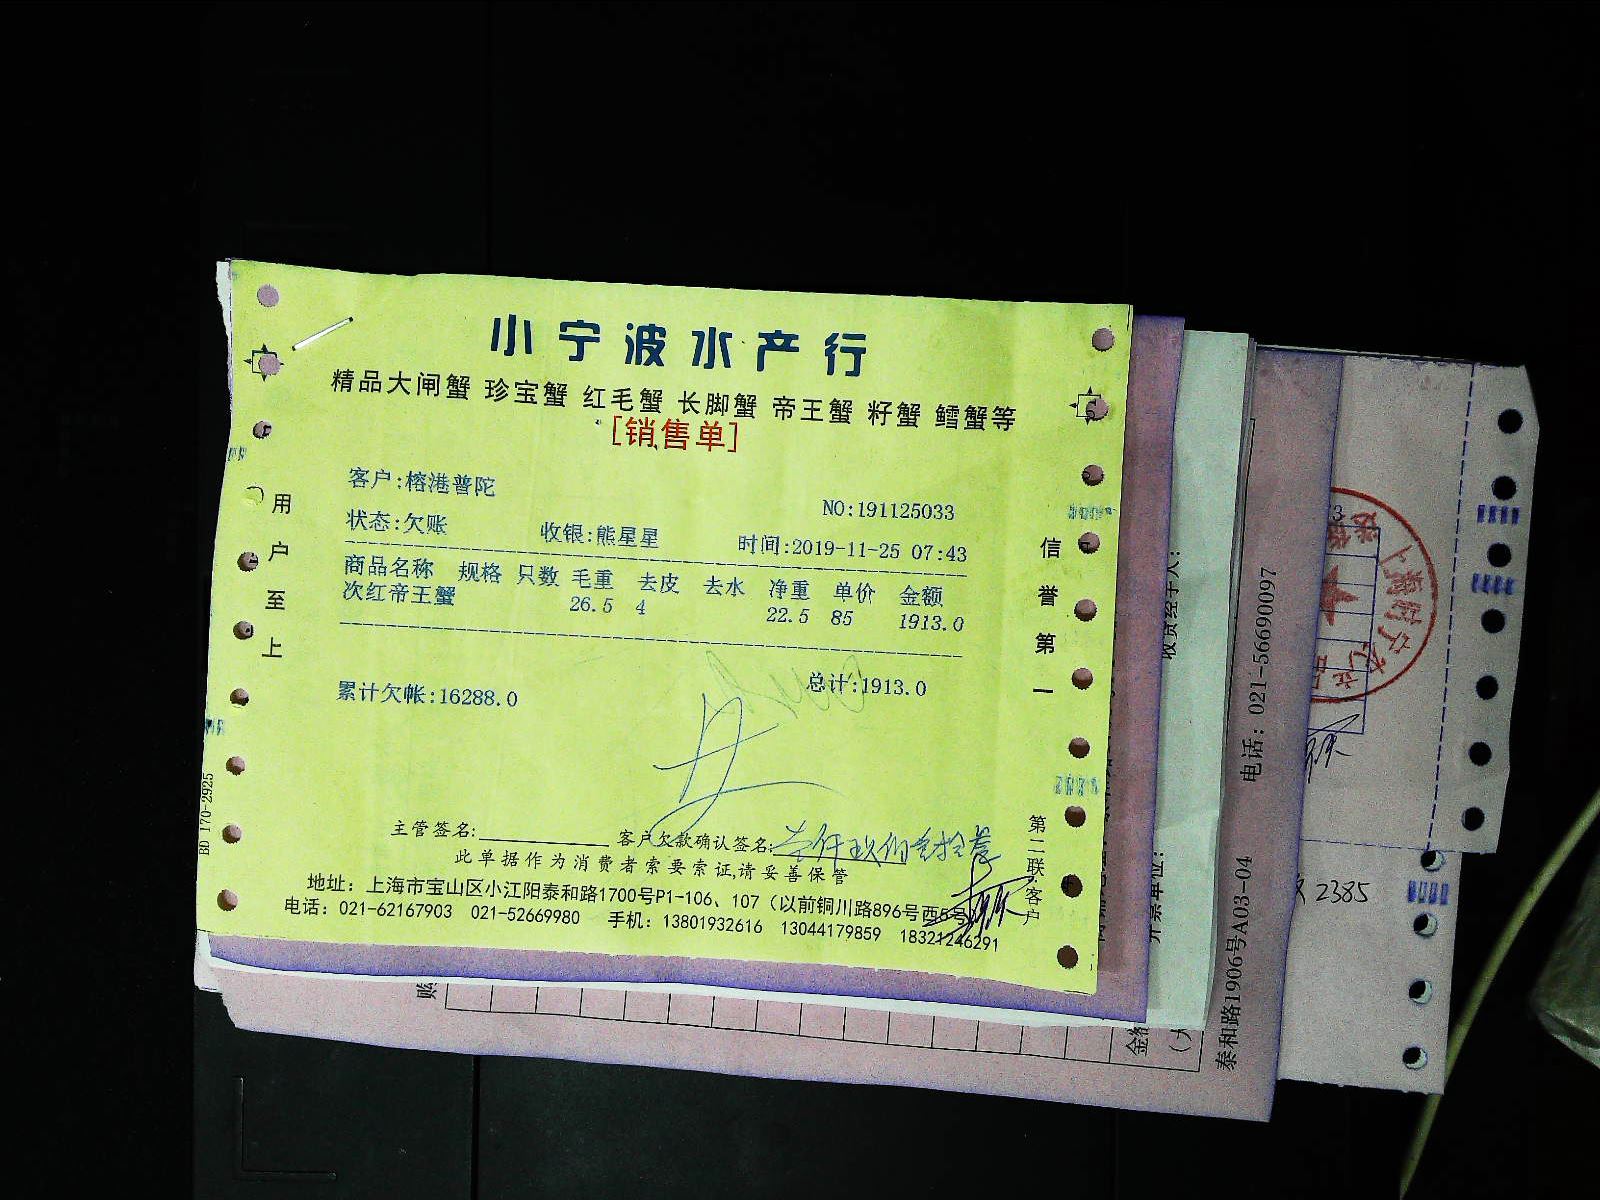 小宁波水产行
精品大闸蟹 珍宝蟹 红毛蟹 长脚蟹 帝王蟹 籽蟹 鳕蟹等
[销售单]
客户:榕港普陀
NO:191125033
状态:欠账 收银:熊星星 时间:2019-11-25 07:43
商品名称 规格 只数 毛重 去皮 去水 净重 单价 金额
次红帝王蟹 26.5 4 22.5 85 1913.0
累计欠帐:16288.0 总计:1913.0
主管签名: 客户欠款确认签名:
此单据作为消费者索要索证,请妥善保管
地址：上海市宝山区小江阳泰和路1700号P1-106、107（以前铜川路896号西5号
电话：021-62167903 021-52669980 手机：13801932616 13044179859 18321246291
用户至上
信誉第一
第二联:客户
BD 170-2925
收货经手人：
开票单位：
金额
泰和路1906号A03-04 电话：021-56690097
2385